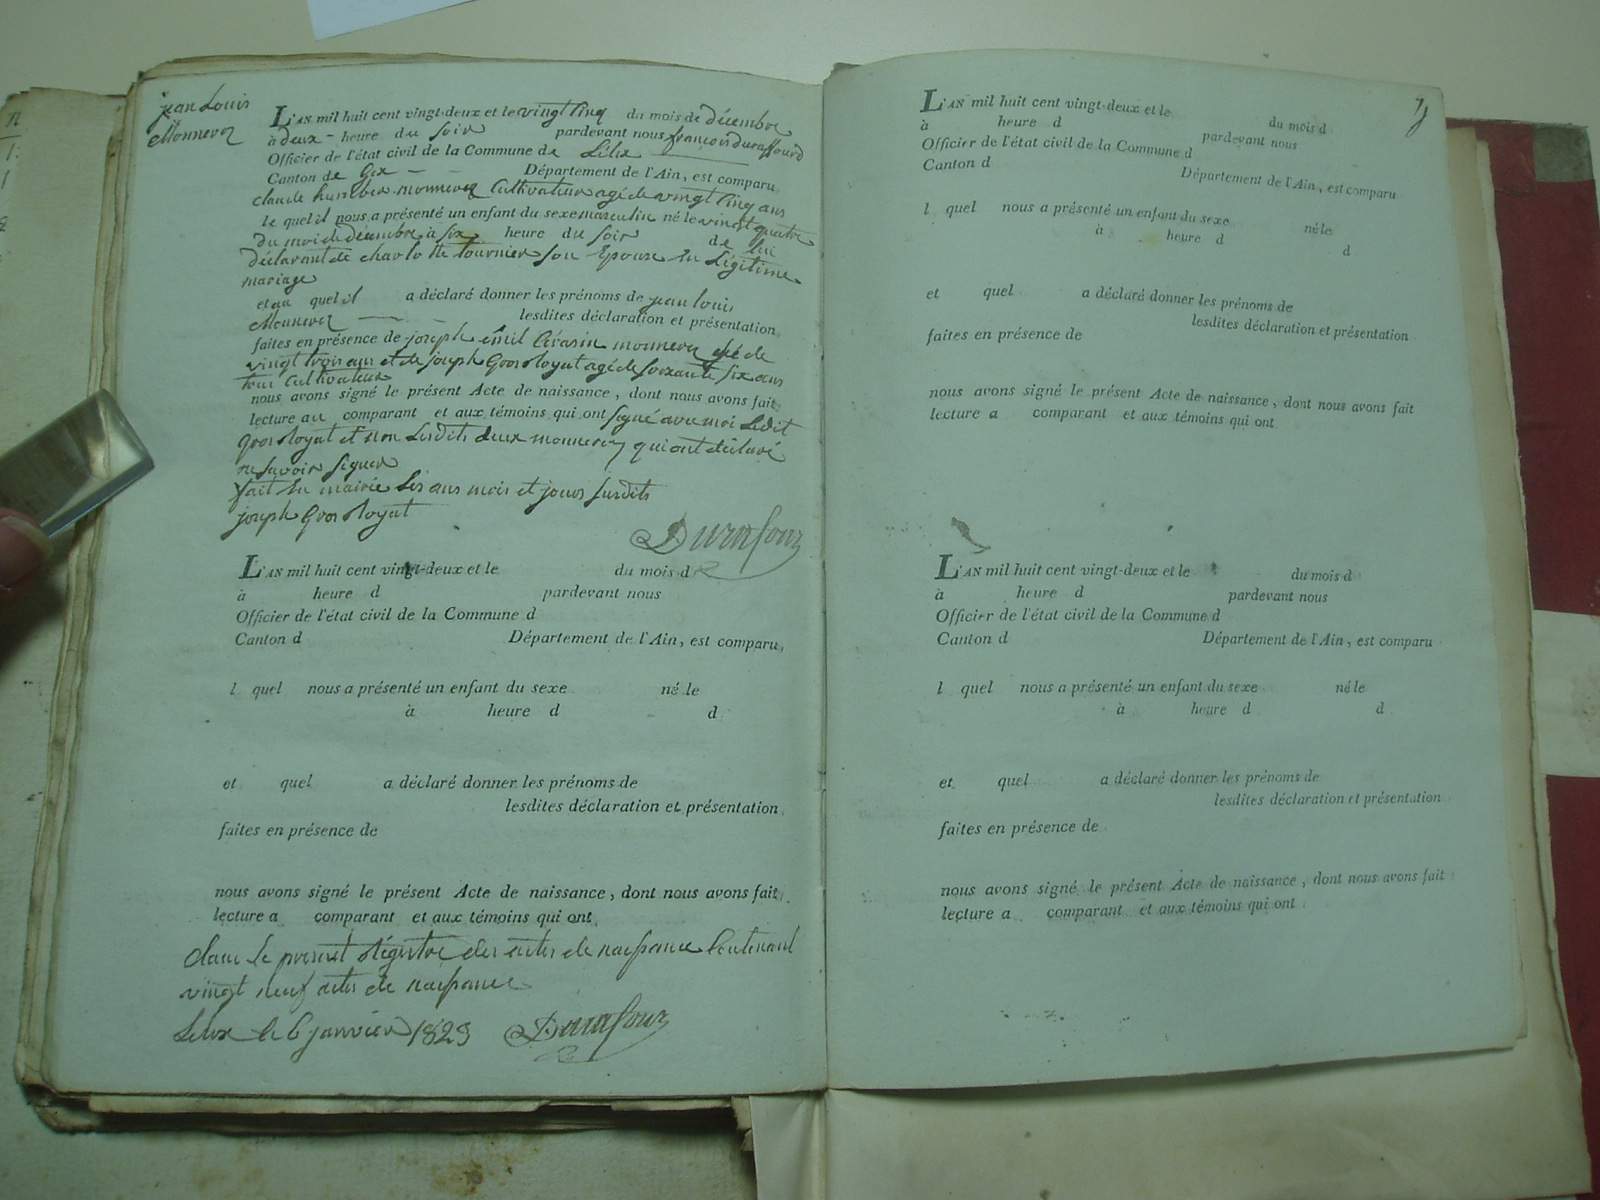 jean Louis
Monnerez
L'AN mil huit cent vingt-deux et le vingt Cinq du mois de décembre
à deux heure du soir pardevant nous françois durafourd
Officier de l'état civil de la Commune de Lélex
Canton de Gex Département de l'Ain, est comparu
claude humber monnerez Cultivateur agé de vingt Cinq ans
le quel il nous a présenté un enfant du sexe masculin né le vingt quatre
du moi de décembre à six heure du soir de lui
déclarant de charlotte tournier son Epouse En Légitime
mariage
et au quel il a déclaré donner les prénoms de jean louis
Monnerez lesdites déclaration et présentation
faites en présence de joseph émil monnerez agé de
vingt trois ans et de joseph Gros Royat agé de soixante six ans
tous Cultivateur
nous avons signé le présent Acte de naissance, dont nous avons fait
lecture au comparant et aux témoins qui ont signé avec moi Ledit
Gros Royat et non Lesdits deux monnerez qui ont déclaré
ne savoir signer
fait En mairie Les ans mois et jours susdits
joseph Gros Royat
Durafour
L'AN mil huit cent vingt-deux et le du mois d
à heure d pardevant nous
Officier de l'état civil de la Commune d
Canton d Département de l'Ain, est comparu
l quel nous a présenté un enfant du sexe né le
à heure d d
et quel a déclaré donner les prénoms de
lesdites déclaration et présentation
faites en présence de
nous avons signé le présent Acte de naissance, dont nous avons fait
lecture a comparant et aux témoins qui ont
le present Régistre des actes de naissance Contenant
vingt neuf actes de naissance
Lelex le 6 janvier 1823 Durafour
L'AN mil huit cent vingt-deux et le du mois d
à heure d pardevant nous
Officier de l'état civil de la Commune d
Canton d Département de l'Ain, est comparu
l quel nous a présenté un enfant du sexe né le
à heure d d
et quel a déclaré donner les prénoms de
lesdites déclaration et présentation
faites en présence de
nous avons signé le présent Acte de naissance, dont nous avons fait
lecture a comparant et aux témoins qui ont
L'AN mil huit cent vingt-deux et le du mois d
à heure d pardevant nous
Officier de l'état civil de la Commune d
Canton d Département de l'Ain, est comparu
l quel nous a présenté un enfant du sexe né le
à heure d d
et quel a déclaré donner les prénoms de
lesdites déclaration et présentation
faites en présence de
nous avons signé le présent Acte de naissance, dont nous avons fait
lecture a comparant et aux témoins qui ont